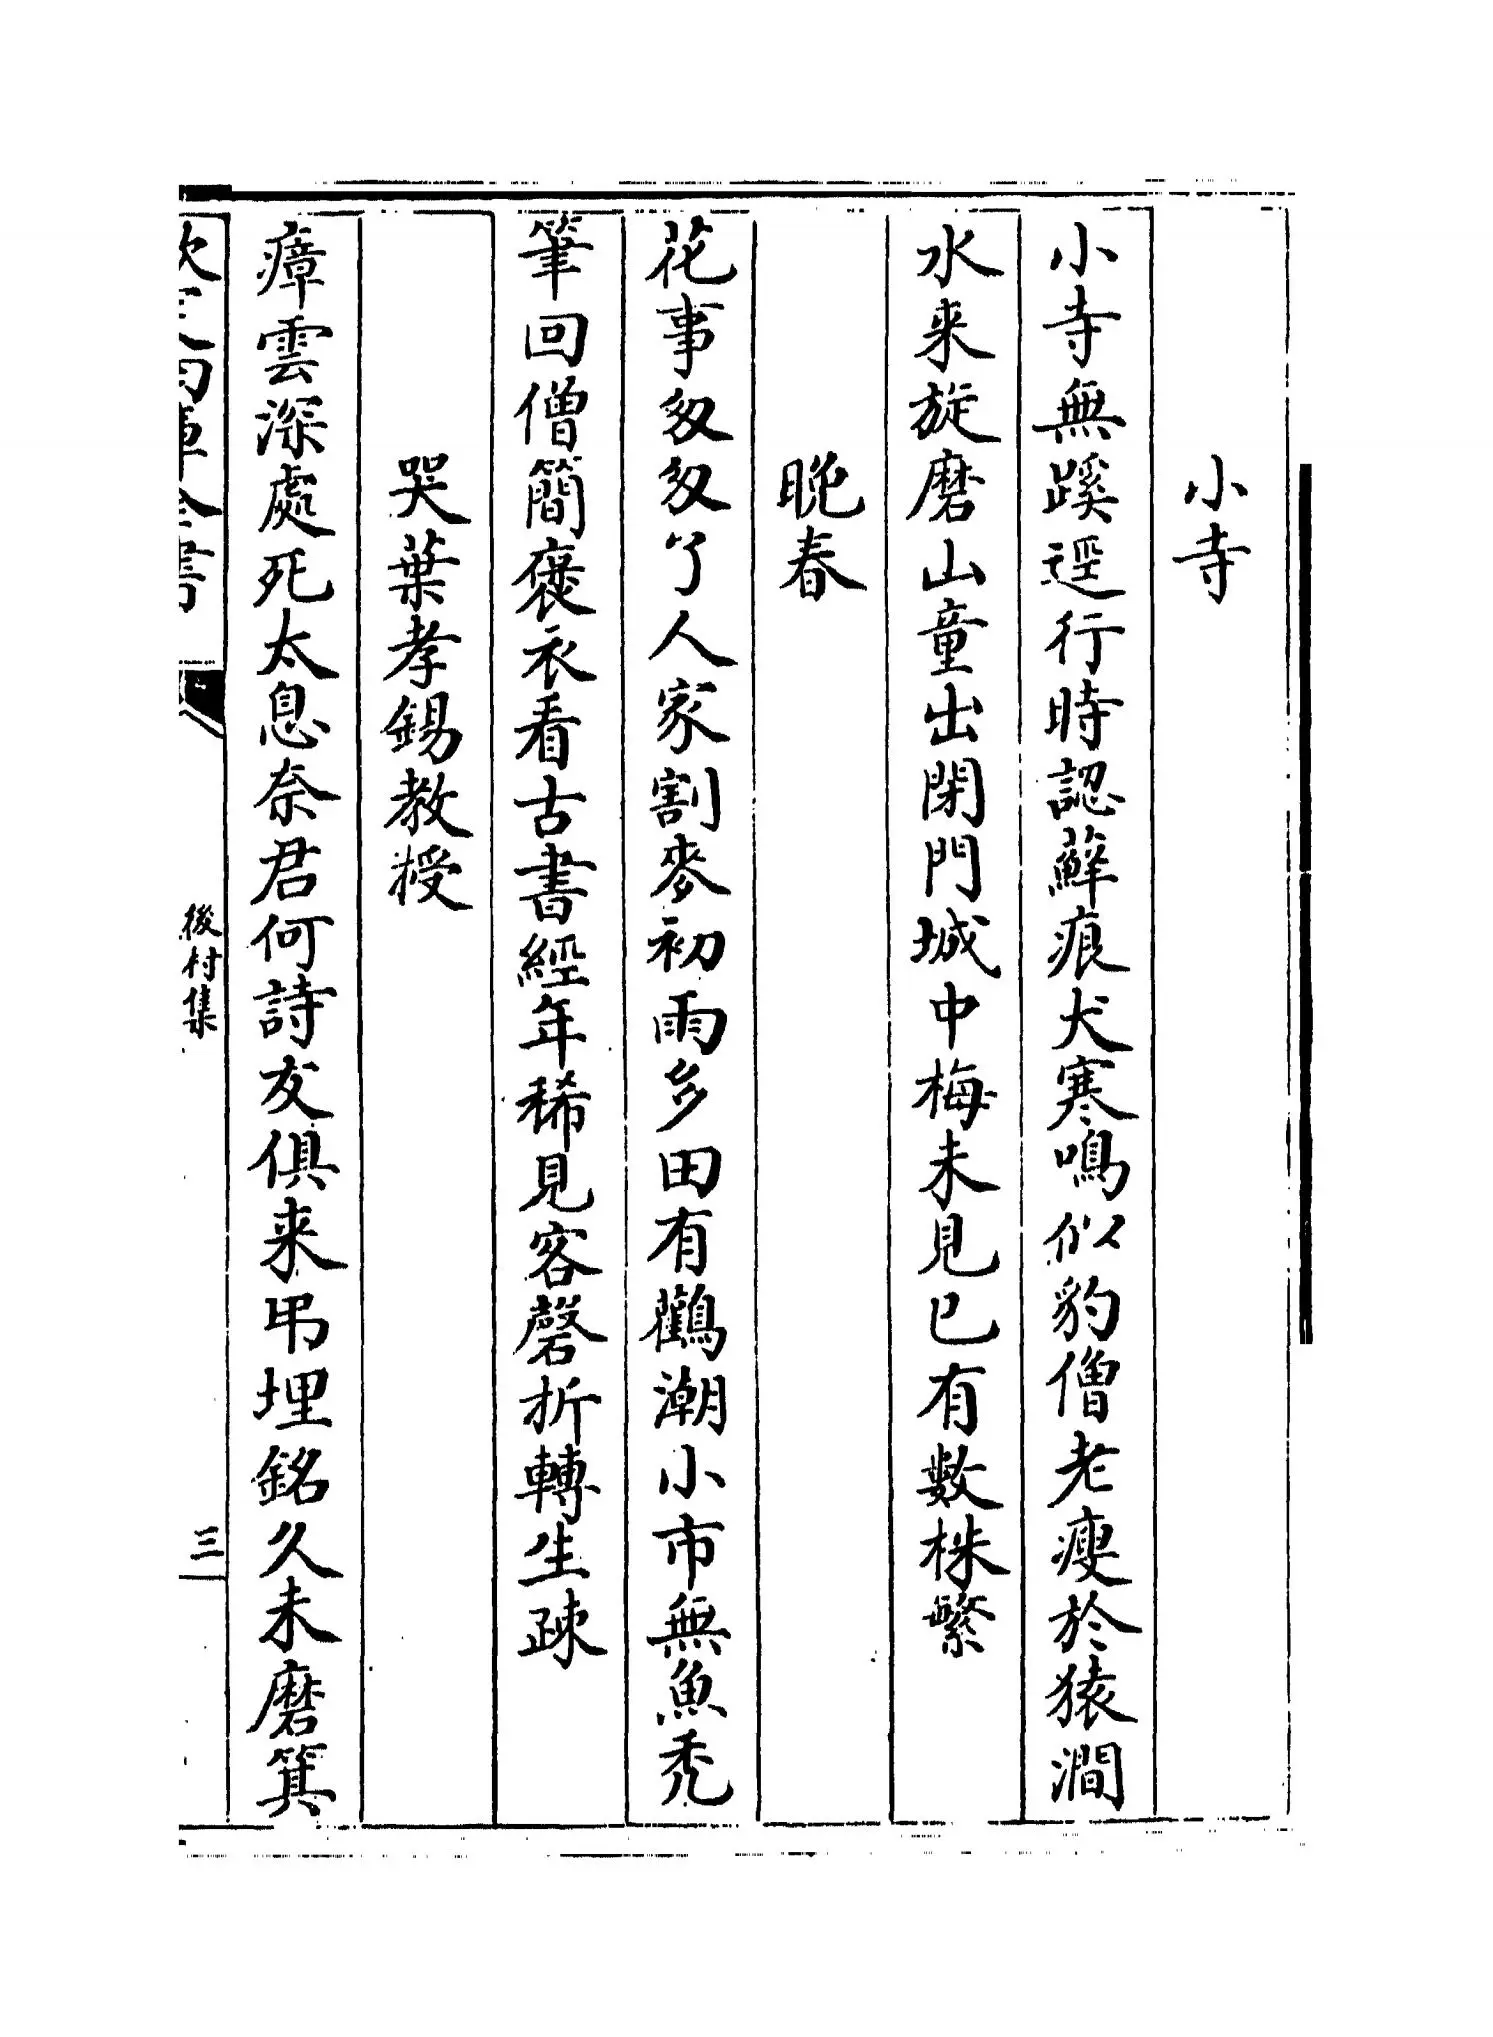 小寺
小寺無蹊逕行時認蘚痕犬寒鳴似豹僧老瘦於猿澗
水来旋磨山童出閉門城中梅未見已有數株繁
晚春
花事匆匆了人家割麥初雨多田有鸛潮小市無魚禿
筆回僧簡褒衣看古書經年稀見客磬折轉生疎
哭葉孝錫教授
瘴雲深處死太息奈君何詩友俱来弔埋銘久未磨箕
欽定四庫全書
後村集
三